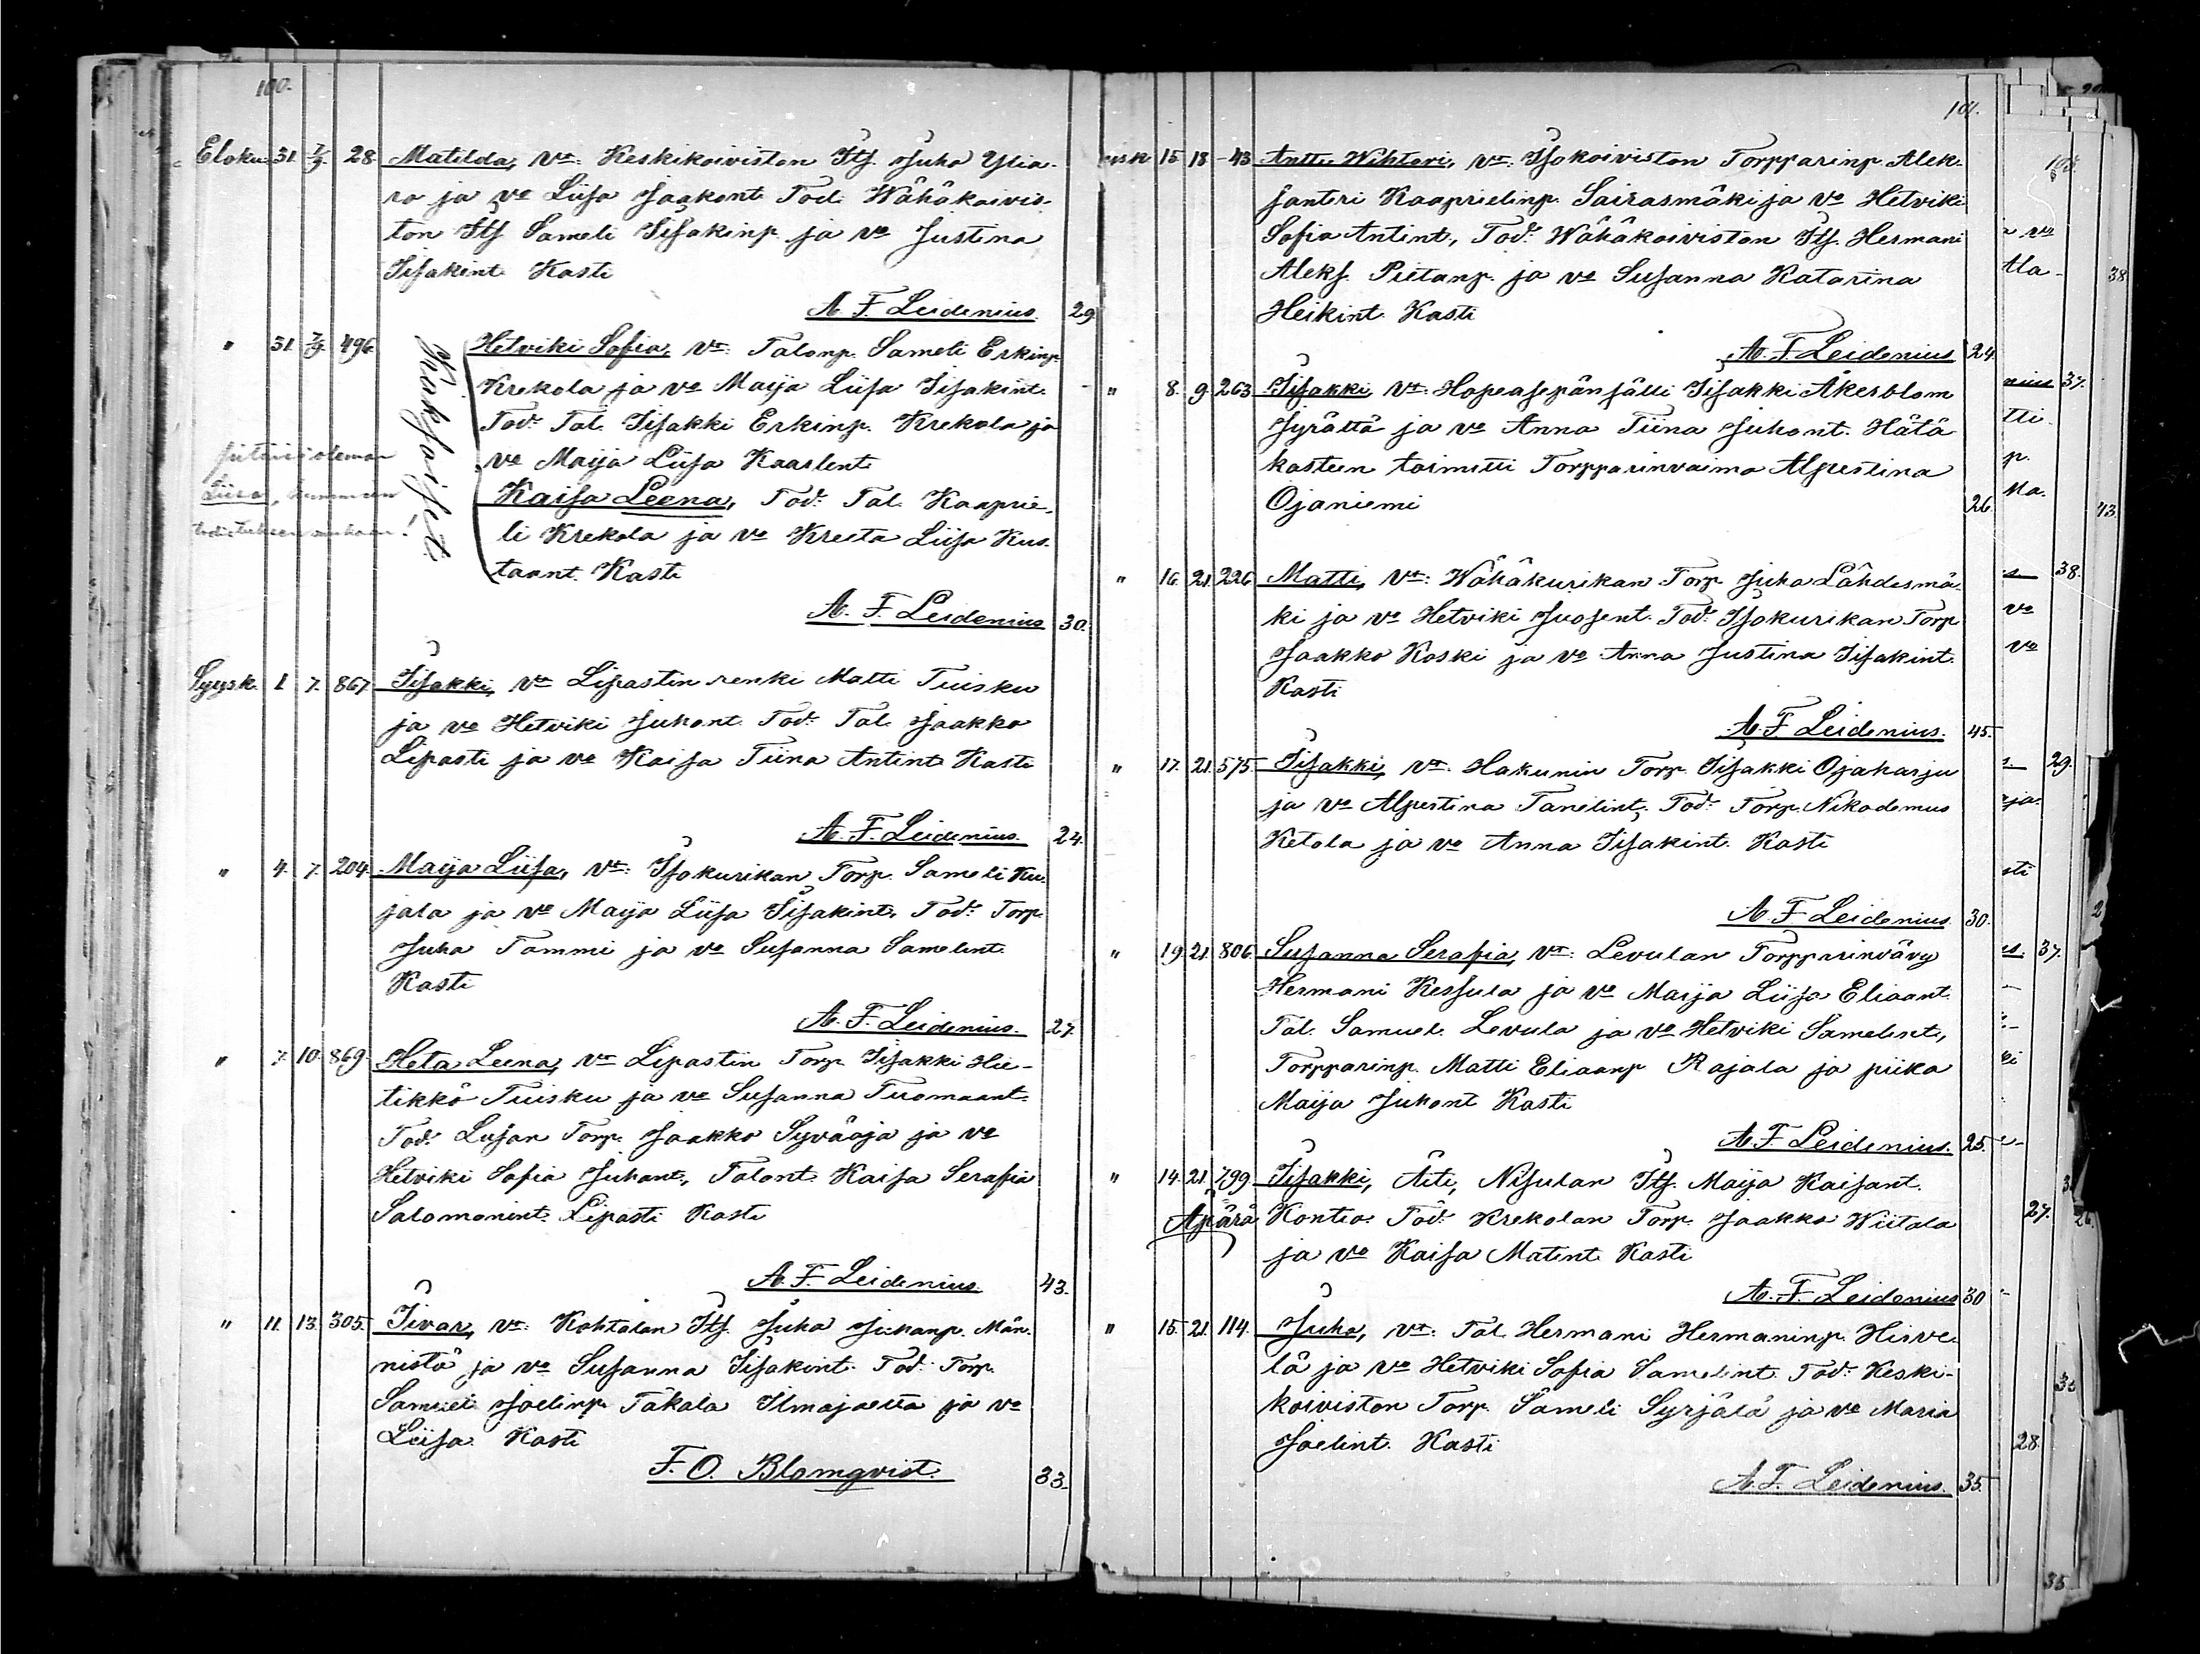 100.
Eloku 31. 7/9. 28. Matilda, vt: Keskikoiviston Its. Juha Ylia-
ro ja vo Liisa Jaakont. Tod. Wähäkoivis-
ton Its. Sameli Iisakinp. ja vo Justina
Iisakint. Kasti
A. F. Leidenius. 29.
" 31. 7/9. 496. Hetviki Sofia, vt: Talonp. Sameli Erkinp.
Krekola ja vo Maija Liisa Iisakint.
Tod: Tal. Iisakki Erkinp. Krekola ja
vo Maija Liisa Kaarlent.
Kaisa Leena, Tod: Tal. Kaaprie-
li Krekola ja vo Kreeta Liisa Kus-
taant. Kasti
Kaksoiset.
pitäisi oleman
Liisa,
A. F. Leidenius 30.
Syysk. 1. 7. 867. Iisakki, vt: Lipastin renki Matti Tuisku
ja vo Hetviki Juhont. Tod: Tal. Jaakko
Lipasti ja vo Kaisa Tiina Antint. Kasti
A. F. Leidenius. 24.
" 4. 7. 204. Maija Liisa, vt: Isokurikan Torp. Sameli Ku-
jala ja vo Maija Liisa Iisakint. Tod: Torp.
Juha Tammi ja vo Susanna Samelint.
Kasti
A. F. Leidenius. 27.
" 7. 10. 869. Heta Leena, vt: Lipastin Torp. Iisakki Hie-
tikkö Tuisku ja vo Susanna Tuomaant.
Tod: Lusan Torp. Jaakko Syväoja ja vo
Hetviki Sofia Juhont., Talont. Kaisa Serafia
Salomonint. Lipasti Kasti
A. F. Leidenius. 43.
" 11. 13. 305. Iivar, vt: Kohtalan Its. Juha Juhanp. Män-
nistö ja vo Susanna Iisakint. Tod: Torp.
Sameli Joelinp. Takala Ilmajoelta ja vo
Liisa Kasti
F. O. Blomqvist. 33.
101.
15 18 43 Antti Wihtori, vt: Isokoiviston Torpparinp. Alek-
santeri Kaaprielinp. Sairasmäki ja vo Hetviki
Sofia Antint., Tod: Wähäkoiviston Its. Hermani
Aleks. Pietanp. ja vo Susanna Katarina
Heikint. Kasti
A. F. Leidenius 24.
" 8. 9. 263. Iisakki vt: Hopeasepänsälli Iisakki Åkerblom
Jyrältä ja vo Anna Tiina Juhont. Hätä
kasteen toimitti Torpparinvaimo Alpertina
Ojaniemi 26.
" 16. 21. 226. Matti, vt: Wähäkurikan Torp. Juha Lähdesmä-
ki ja vo Hetviki Juosent. Tod: Isokurikan Torp.
Jaakko Koski ja vo Anna Justina Iisakint.
Kasti
A. F. Leidenius. 45.
" 17. 21. 575. Iisakki, vt: Hakunin Torp. Iisakki Ojaharju
ja vo Alpertina Tanelint. Tod: Torp. Nikodemus
Ketola ja vo Anna Iisakint. Kasti
A. F. Leidenius 30.
" 19. 21. 806. Susanna Serafia, vt: Levulan Torpparinvävy
Hermani Kessula ja vo Maija Liisa Eliaant.
Tal. Samuel Levula ja vo Hetviki Samelint.,
Torpparinp. Matti Eliaanp. Rajala ja piika
Maija Juhont. Kasti
A. F. Leidenius. 25.
" 14. 21. 799. Iisakki, Äiti, Nisulan Its. Maija Kaisant.
Äpärä Kontio. Tod: Krekolan Torp. Jaakko Wiitala
ja vo Kaisa Matint. Kasti
A. F. Leidenius 30
" 15. 21. 114. Juho, vt: Tal. Hermani Hermaninp. Hirve-
lä ja vo Hetviki Sofia Samelint. Tod: Keski-
koiviston Torp. Sameli Syrjälä ja vo Maria
Joelint. Kasti
A. F. Leidenius. 35.